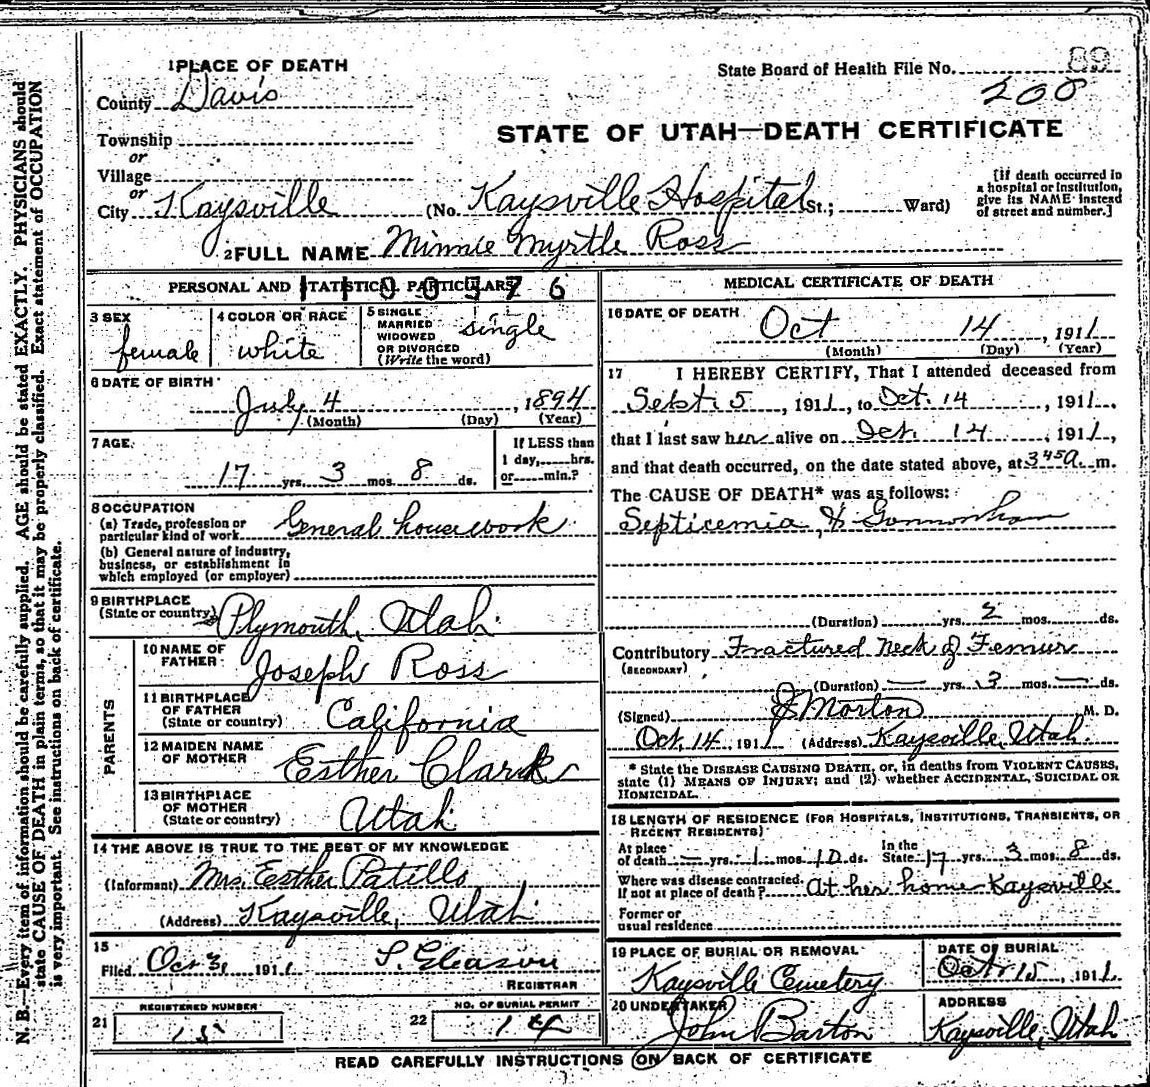 1 PLACE OF DEATH
State Board of Health File No. 89
County Davis
208
Township
or
STATE OF UTAH—DEATH CERTIFICATE
Village
or
City Kaysville (No. Kaysville Hospital St.; Ward)
[If death occurred in
a hospital or institution,
give its NAME instead
of street and number.]
2 FULL NAME Minnie Myrtle Ross
PERSONAL AND STATISTICAL PARTICULARS
3 SEX
female
4 COLOR OR RACE
white
5 SINGLE
MARRIED
WIDOWED
OR DIVORCED
(Write the word)
single
6 DATE OF BIRTH
July 4, 1894
(Month) (Day) (Year)
7 AGE
17 yrs. 3 mos. 8 ds.
If LESS than
1 day, hrs.
or min.?
8 OCCUPATION
(a) Trade, profession or
particular kind of work General housework
(b) General nature of industry,
business, or establishment in
which employed (or employer)
9 BIRTHPLACE
(State or country) Plymouth, Utah.
PARENTS
10 NAME OF
FATHER Joseph Ross
11 BIRTHPLACE
OF FATHER
(State or country) California
12 MAIDEN NAME
OF MOTHER Esther Clark
13 BIRTHPLACE
OF MOTHER
(State or country) Utah
14 THE ABOVE IS TRUE TO THE BEST OF MY KNOWLEDGE
(Informant) Mrs. Esther Patillo
(Address) Kaysville, Utah
15
Filed Oct 31 1911 S. Gleason
REGISTRAR
21 REGISTERED NUMBER
15
22 NO. OF BURIAL PERMIT
14
MEDICAL CERTIFICATE OF DEATH
16 DATE OF DEATH
Oct 14, 1911
(Month) (Day) (Year)
17 I HEREBY CERTIFY, That I attended deceased from
Sept. 5, 1911, to Oct. 14, 1911,
that I last saw her alive on Oct. 14, 1911,
and that death occurred, on the date stated above, at 3 45 a. m.
The CAUSE OF DEATH* was as follows:
Septicemia &
(Duration) yrs. 2 mos. ds.
Contributory Fractured neck of Femur
(SECONDARY)
(Duration) — yrs. 3 mos. — ds.
(Signed) J Morton M. D.
Oct. 14, 1911 (Address) Kaysville, Utah.
* State the DISEASE CAUSING DEATH, or, in deaths from VIOLENT CAUSES,
state (1) MEANS OF INJURY; and (2) whether ACCIDENTAL, SUICIDAL OR
HOMICIDAL.
18 LENGTH OF RESIDENCE (FOR HOSPITALS, INSTITUTIONS, TRANSIENTS, OR
RECENT RESIDENTS)
At place
of death — yrs. 1 mos. 10 ds.
In the
State 17 yrs. 3 mos. 8 ds.
Where was disease contracted,
If not at place of death? At her home Kaysville
Former or
usual residence
19 PLACE OF BURIAL OR REMOVAL
Kaysville Cemetery
DATE OF BURIAL
Oct 15, 1911.
20 UNDERTAKER
John Barton
ADDRESS
Kaysville, Utah
READ CAREFULLY INSTRUCTIONS ON BACK OF CERTIFICATE
N. B.—Every item of information should be carefully supplied. AGE should be stated EXACTLY. PHYSICIANS should
state CAUSE OF DEATH in plain terms, so that it may be properly classified. Exact statement of OCCUPATION
is very important. See instructions on back of certificate.